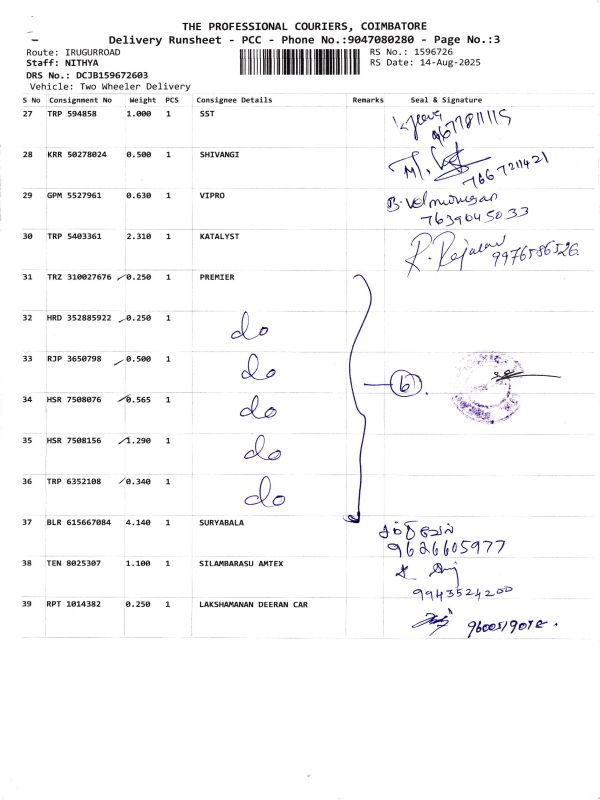 THE PROFESSIONAL COURIERS, COIMBATORE
Delivery Runsheet - PCC - Phone No.:9047080280 - Page No.:3
Route: IRUGURROAD
Staff: NITHYA
DRS No.: DCJB159672603
Vehicle: Two Wheeler Delivery
RS No.: 1596726
RS Date: 14-Aug-2025
S No Consignment No Weight PCS Consignee Details Remarks Seal & Signature
27 TRP 594858 1.000 1 SST
28 KRR 50278024 0.500 1 SHIVANGI
7667211421
29 GPM 5527961 0.630 1 VIPRO B. Velmurugan
7639045033
30 TRP 5403361 2.310 1 KATALYST R. Rajalal
9976586526
31 TRZ 310027676 0.250 1 PREMIER
32 HRD 352885922 0.250 1 do
33 RJP 3650798 0.500 1 do
6
34 HSR 7508076 0.565 1 do
35 HSR 7508156 1.290 1 do
36 TRP 6352108 0.340 1 do
37 BLR 615667084 4.140 1 SURYABALA சக்திவேல்
9626605977
38 TEN 8025307 1.100 1 SILAMBARASU AMTEX
9943524200
39 RPT 1014382 0.250 1 LAKSHAMANAN DEERAN CAR